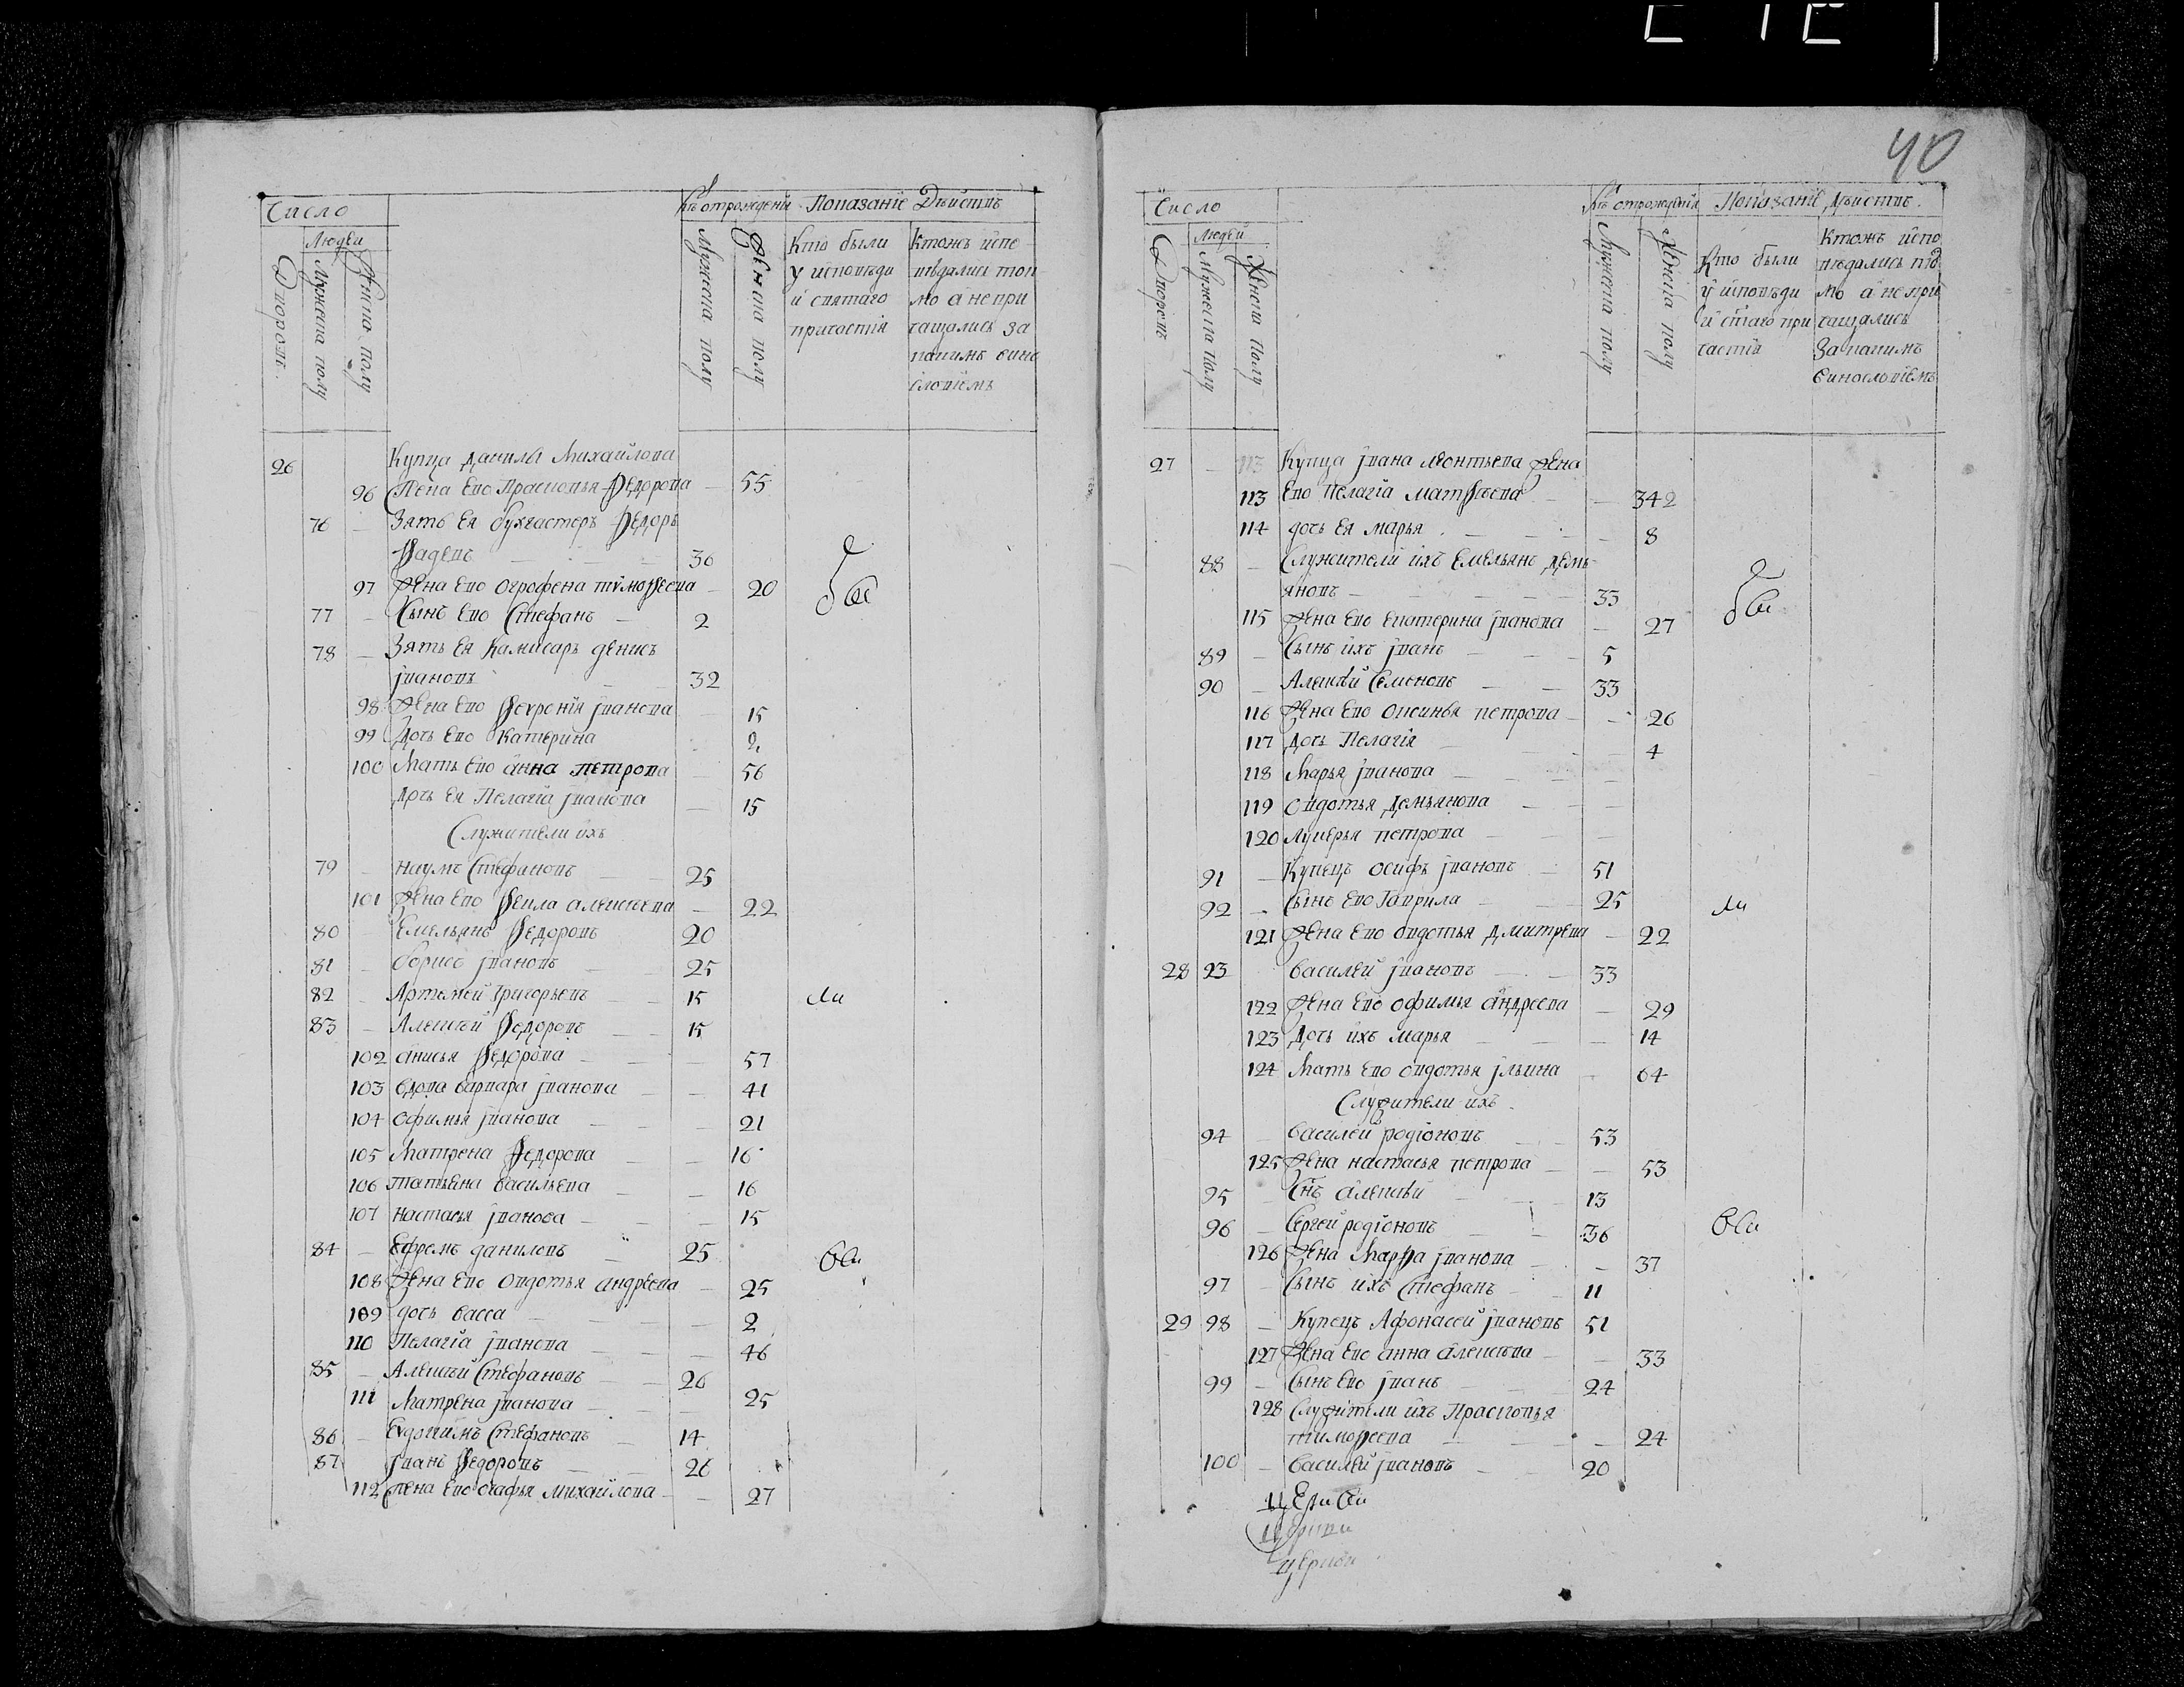 40
Число
Лѣтъ отрождени Показаніе Дѣйствъ
Людей
Дворовъ
Мужеска полу
Женска полу
Мужеска полу
Женска полу
Кто были
у исповѣди
и святаго
причастія
Ктожъ испо
вѣдались ток
мо а непри
чащались за
какимъ вино
словіемъ
26 Купца Данилы Михайлова
96 Жена Ево Прасковья Ѳедорова 55
76 Зять Ея бухгастеръ Ѳедоръ
Ѳадевъ 36
97 Жена Ево Огрофена тимоѳеева 20
77 Сынъ Ево Стефанъ 2
78 Зять Ея Камисаръ денисъ
јвановъ 32
98 Жена Ево Ѳеврѳнія јванова 15
99 Дочь Ево Катерина 2
100 Мать Ево анна петрова 56
дочь Ея Пелагіа јванова 15
бы
Служители ихъ
79 наумъ Стефановъ 25
101 Жена Ево Ѳекла алексеева 22
80 Емельянъ Ѳедоровъ 20
81 борисъ јвановъ 25
82 Артемей Григорьевъ 15
ли
83 Алексѣй Ѳедоровъ 15
102 анисья Ѳедорова 57
103 вдова варвара јванова 41
104 офимья јванова 21
105 Матрена Ѳедорова 16
106 татьяна васильева 16
107 настасья јванова 15
84 Ефремъ даниловъ 25
вси
108 Жена Ево овдотья андреева 25
109 дочь васса 2
110 Пелагіа јванова 46
85 Алексѣй Стефановъ 26
111 Матрена јванова 25
86 Евдокимъ Стефановъ 14
87 јванъ Ѳедоровъ 26
112 жена Ево агафья Михайлова 27
Число
Лѣтъ отрожденія Показаніе дѣйствъ
Людей
Дворовъ
Мужеска полу
Женска полу
Мужеска полу
Женска полу
Кто были
у исповѣди
и стаго при
частія
Ктожъ испо
вѣдались тод
мо а непри
чащались
За какимъ
винословіемъ
27 113 Купца јвана леонтьева Жена
113 Ево Пелагіа матѳѣева 342
114 дочь Ея марья 8
88 Служители ихъ Емельянъ демь
яновъ 33
бы
115 Жена Ево Екатерина јванова 27
89 Сынъ ихъ јванъ 5
90 Алексѣй Семеновъ 33
116 Жена Ево оксинья петрова 26
117 дочь Пелагіа 4
118 Марья јванова
119 овдотья демьянова
120 лукерья петрова
91 Купецъ осифъ јвановъ 51
92 Сынъ Ево Гаврила 25
ли
121 Жена Ево овдотья дмитрева 22
28 93 василей јвановъ 33
122 Жена Ево офимья андреева 29
123 дочь ихъ марья 14
124 Мать Ево овдотья јльина 64
Служители ихъ
94 василей родіоновъ 53
125 Жена настасья петрова 53
95 Снъ алексѣй 13
96 Сергей родіоновъ 36
вси
126 Жена Марѳа јванова 37
97 Сынъ ихъ Стефанъ 11
29 98 Купецъ Афонасей јвановъ 51
127 Жена Ево анна алексѣва 33
99 Сынъ Ево јванъ 24
128 Служители ихъ Прасковья
тимоѳеева 24
100 василей јвановъ 20
церкви
церкви
церкви